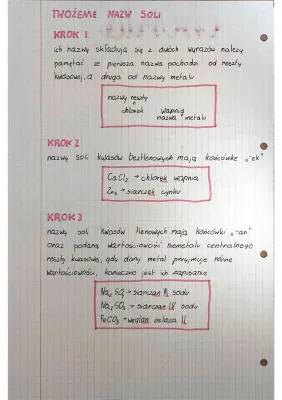 TWOŻEME NAZW SOLI
KROK 1
ich nazwy składają się z dwóch wyrazów należy
pamiętać że pierwsza nazwa pochodzi od reszty
kwasowej, a druga od nazwy metalu
nazwy reszty
chlorek wapnia
nazwa metalu
KROK 2
nazwy soli kwasów beztlenowych mają końcówkę "ek"
CaCl2 → chlorek wapnia
ZnS → siarczek cynku
KROK 3
nazwy soli kwasów tlenowych mają końcówki "an"
oraz podaną wartościowość niemetalu centralnego
reszty kwasowej, gdy dany metal przyjmuje różne
wartościowości, konieczne jest ich zapisanie
Na2SO4 → siarczan VI sodu
Na2SO3 → siarczan IV sodu
FeCO3 → węglan żelaza II